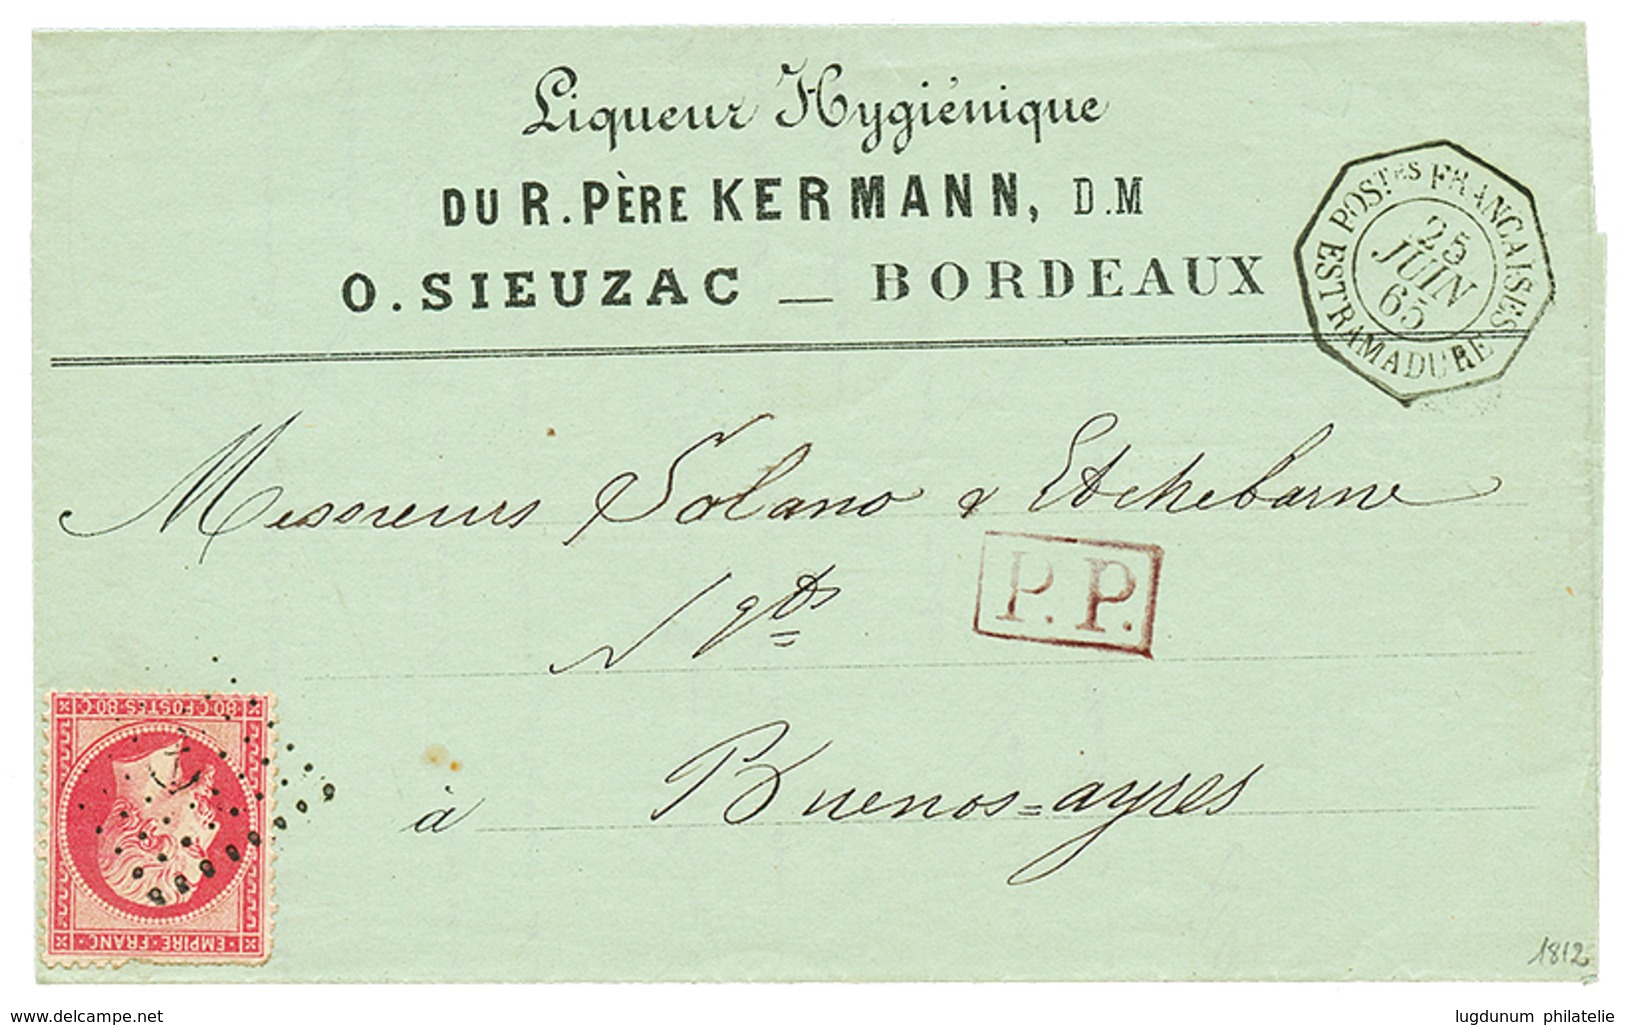 Liqueur Hygiénique
DU R. PÈRE KERMANN, D.M
O. SIEUZAC — BORDEAUX
POSTES FRANCAISES
25
JUIN
65
ESTRAMADURE
Messieurs Solano & Etchebarne
Ngts
P.P.
à Buenos=ayres
80 C POSTES 80 C
EMPIRE FRANC
1812
www.delcampe.net
lugdunum philatelie